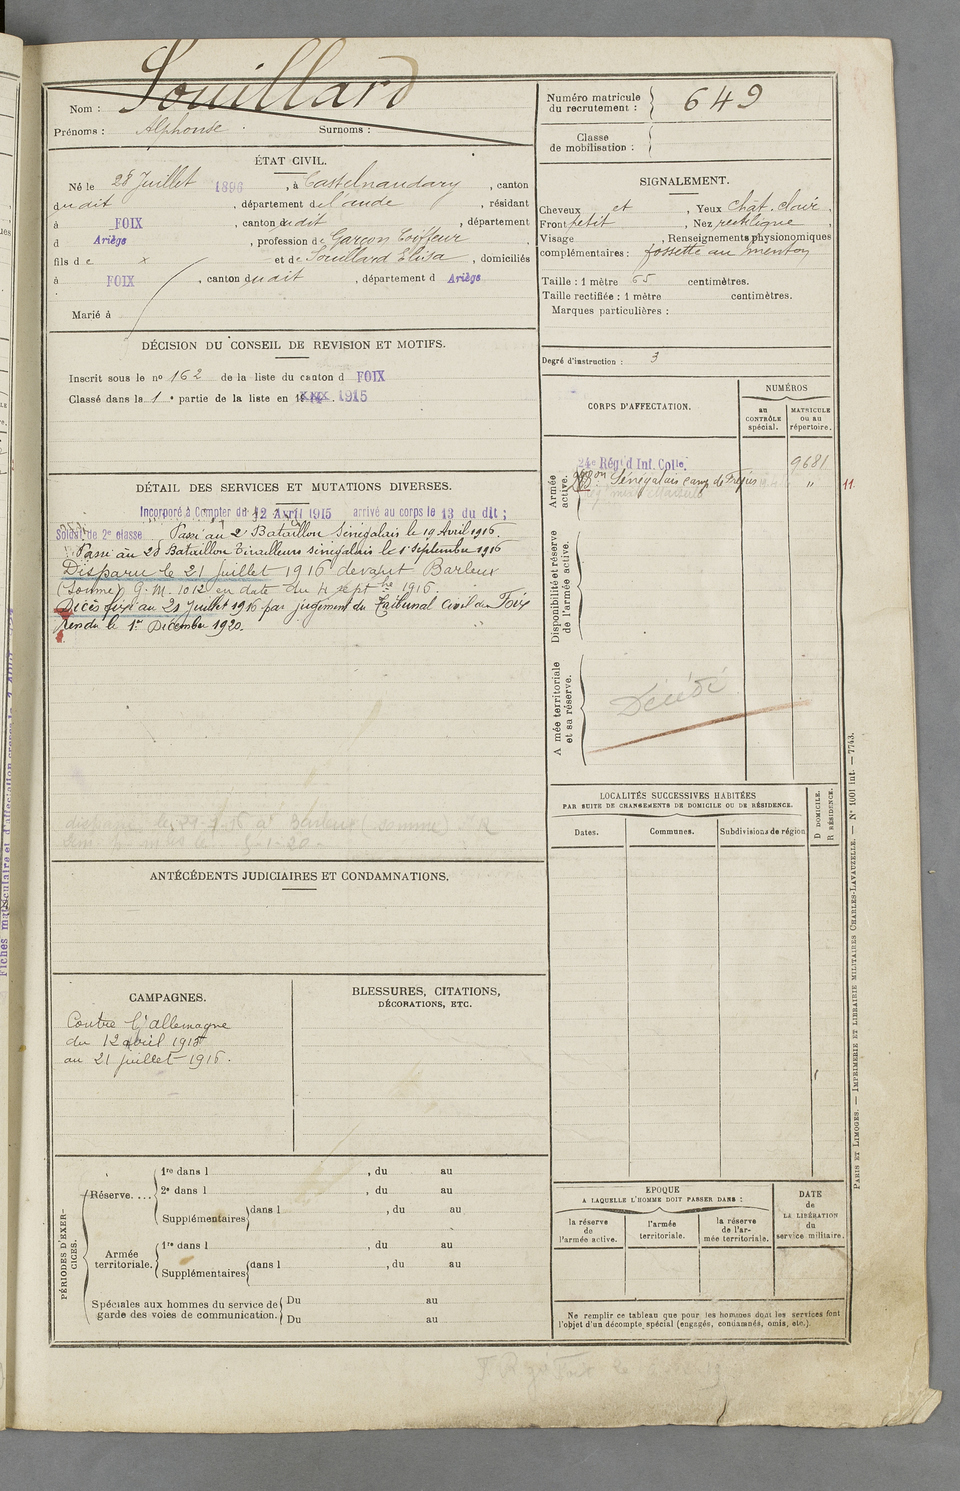 Nom : Souillard
Prénoms : Alphonse. Surnoms :
Numéro matricule du recrutement : 649
Classe de mobilisation :
ÉTAT CIVIL.
Né le 28 Juillet 1896, à Castelnaudary, canton
dudit, département de l'aude, résidant
à FOIX, canton dudit, département
d Ariège, profession de Garçon Coiffeur
fils de x et de Souillard Elisa, domiciliés
à FOIX, canton dudit, département d Ariège
Marié à
SIGNALEMENT.
Cheveux et, Yeux chât. clair,
Front petit, Nez rectiligne,
Visage, Renseignements physionomiques
complémentaires : fossette au menton
Taille : 1 mètre 65 centimètres.
Taille rectifiée : 1 mètre centimètres.
Marques particulières :
Degré d'instruction : 3
DÉCISION DU CONSEIL DE REVISION ET MOTIFS.
Inscrit sous le no 162 de la liste du canton d FOIX
Classé dans la 1e partie de la liste en 1915
DÉTAIL DES SERVICES ET MUTATIONS DIVERSES.
Incorporé à Compter du 12 Avril 1915 arrivé au corps le 13 du dit ;
Soldat de 2e classe Passé au 2e Bataillon Sénégalais le 19 Avril 1916.
Passé au 28 Bataillon Tirailleurs Sénégalais le 1er Septembre 1916
Disparu le 21 juillet 1916 devant Barleux
(Somme) G. M. 1012 en date du 4 septbre 1916.
Décès fixé au 21 Juillet 1916 par jugement du Tribunal Civil de Foix
rendu le 1er Décembre 1920.
disparu le 21-7-16 à Barleux (Somme)
CORPS D'AFFECTATION.
NUMÉROS
au CONTRÔLE spécial.
MATRICULE ou au répertoire.
Armée active.
24e Rég.t d'Inf. Colle. 9681
28e Bon Sénégalais camp de Fréjus "
11
Disponibilité et réserve de l'armée active.
Armée territoriale et sa réserve.
Décédé
LOCALITÉS SUCCESSIVES HABITÉES
PAR SUITE DE CHANGEMENTS DE DOMICILE OU DE RÉSIDENCE.
Dates. Communes. Subdivisions de région
D DOMICILE.
R RÉSIDENCE.
ANTÉCÉDENTS JUDICIAIRES ET CONDAMNATIONS.
CAMPAGNES.
Contre l'allemagne
du 12 avril 1915
au 21 juillet 1916.
BLESSURES, CITATIONS,
DÉCORATIONS, ETC.
PÉRIODES D'EXERCICES.
Réserve....
1re dans l , du au
2e dans l , du au
Supplémentaires dans l , du au
Armée territoriale.
1re dans l , du au
Supplémentaires dans l , du au
Spéciales aux hommes du service de garde des voies de communication.
Du au
Du au
EPOQUE
A LAQUELLE L'HOMME DOIT PASSER DANS :
la réserve de l'armée active.
l'armée territoriale.
la réserve de l'armée territoriale.
DATE de LA LIBÉRATION du service militaire.
Ne remplir ce tableau que pour les hommes dont les services font
l'objet d'un décompte spécial (engagés, condamnés, omis, etc.).
PARIS ET LIMOGES. — IMPRIMERIE ET LIBRAIRIE MILITAIRES CHARLES-LAVAUZELLE. — N° 1001 int. — 7743.